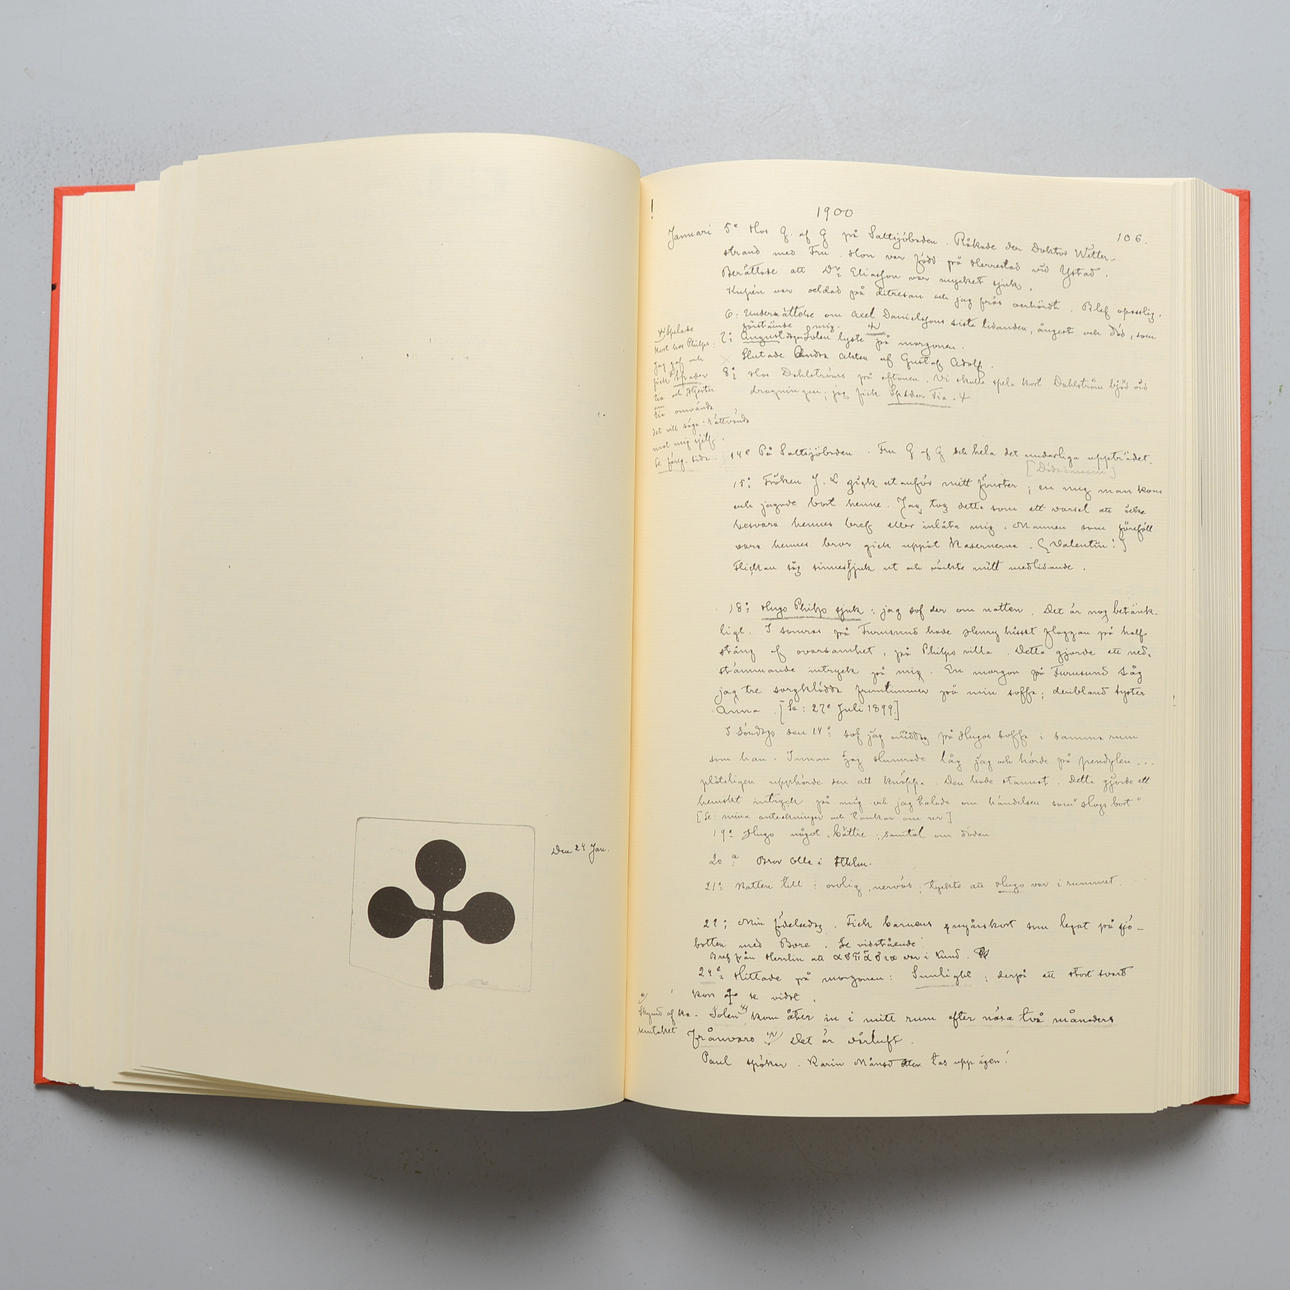 Den 24 Jan.
!
1900
106.
Januari 5e Hos G. af G på Saltsjöbaden. Råkade der Doktor Wetter-
strand med Fru. Hon var född på Herrestad vid Ystad.
Berättade att Dr Eliasson var mycket sjuk.
Kupén var oeldad på ditresan och jag frös oerhördt. Blef opasslig.
6: Underrättelse om Axel Danielssons sista lidanden, ångest och död, som
mig.
7: Augustdagen Solen lyste på morgonen.
Slutade Andra Akten af Gustaf Adolf.
8: Hos Dahlströms på aftonen. Vi skulle spela kort Dahlström bjöd vid
dragningen; jag fick Spader Tia. x
x Spelade
kort hos Philps;
jag gaf och
fick Spader
tia och Hjerter
tia
det vill säga:
mot mig sjelf.
Se föreg. sida.
14e På Saltsjöbaden. Fru G af G och hela det underliga uppträdet.
15: Fröken J. L gick utanför mitt fönster; en ung man kom
och jagade bort henne. Jag tog detta som ett varsel att icke
besvara hennes bref eller inlåta mig. Mannen som föreföll
vara hennes bror gick uppåt Kasernerna. (Valentin!)
Flickan såg sinnessjuk ut och väckte mitt medlidande.
18: Hugo Philp sjuk: jag sof der om natten. Det är nog betänk-
ligt. I somras på Furusund hade Henry hissat flaggan på half
stång af ovarsamhet, på Philps villa. Detta gjorde ett ned-
stämmande intryck på mig. En morgon på Furusund såg
jag tre sorgklädda fruntimmer på min soffa; deribland syster
Anna. [Se: 27e Juli 1899]
I Söndags den 14e sof jag middag på Hugos soffa i samma rum
som han. Innan jag slumrade låg jag och hörde på pendylen...
plötsligen upphörde den att knäppa. Den hade stannat. Detta gjorde ett
hemskt intryck på mig och jag talade om händelsen som "slogs bort"
[Se: mina anteckningar och tankar om ur]
19e Hugo något bättre, samtal om döden
20e Bror Olle i Sthlm.
21: Natten till: orolig, nervös; tyckte att Hugo var i rummet.
22; Min födelsedag. Fick barnens nyårskort som legat på sjö-
botten med Bore. Se vidstående
Bref från Herrlin att var i Lund.
24e: Hittade på morgonen: Sunlight; derpå ett stort svart
kors se vidst.
Solen kom åter in i mitt rum efter nära två månaders
frånvaro Det är vårluft.
Paul spöker. Karin Månsdotter tas upp igen!